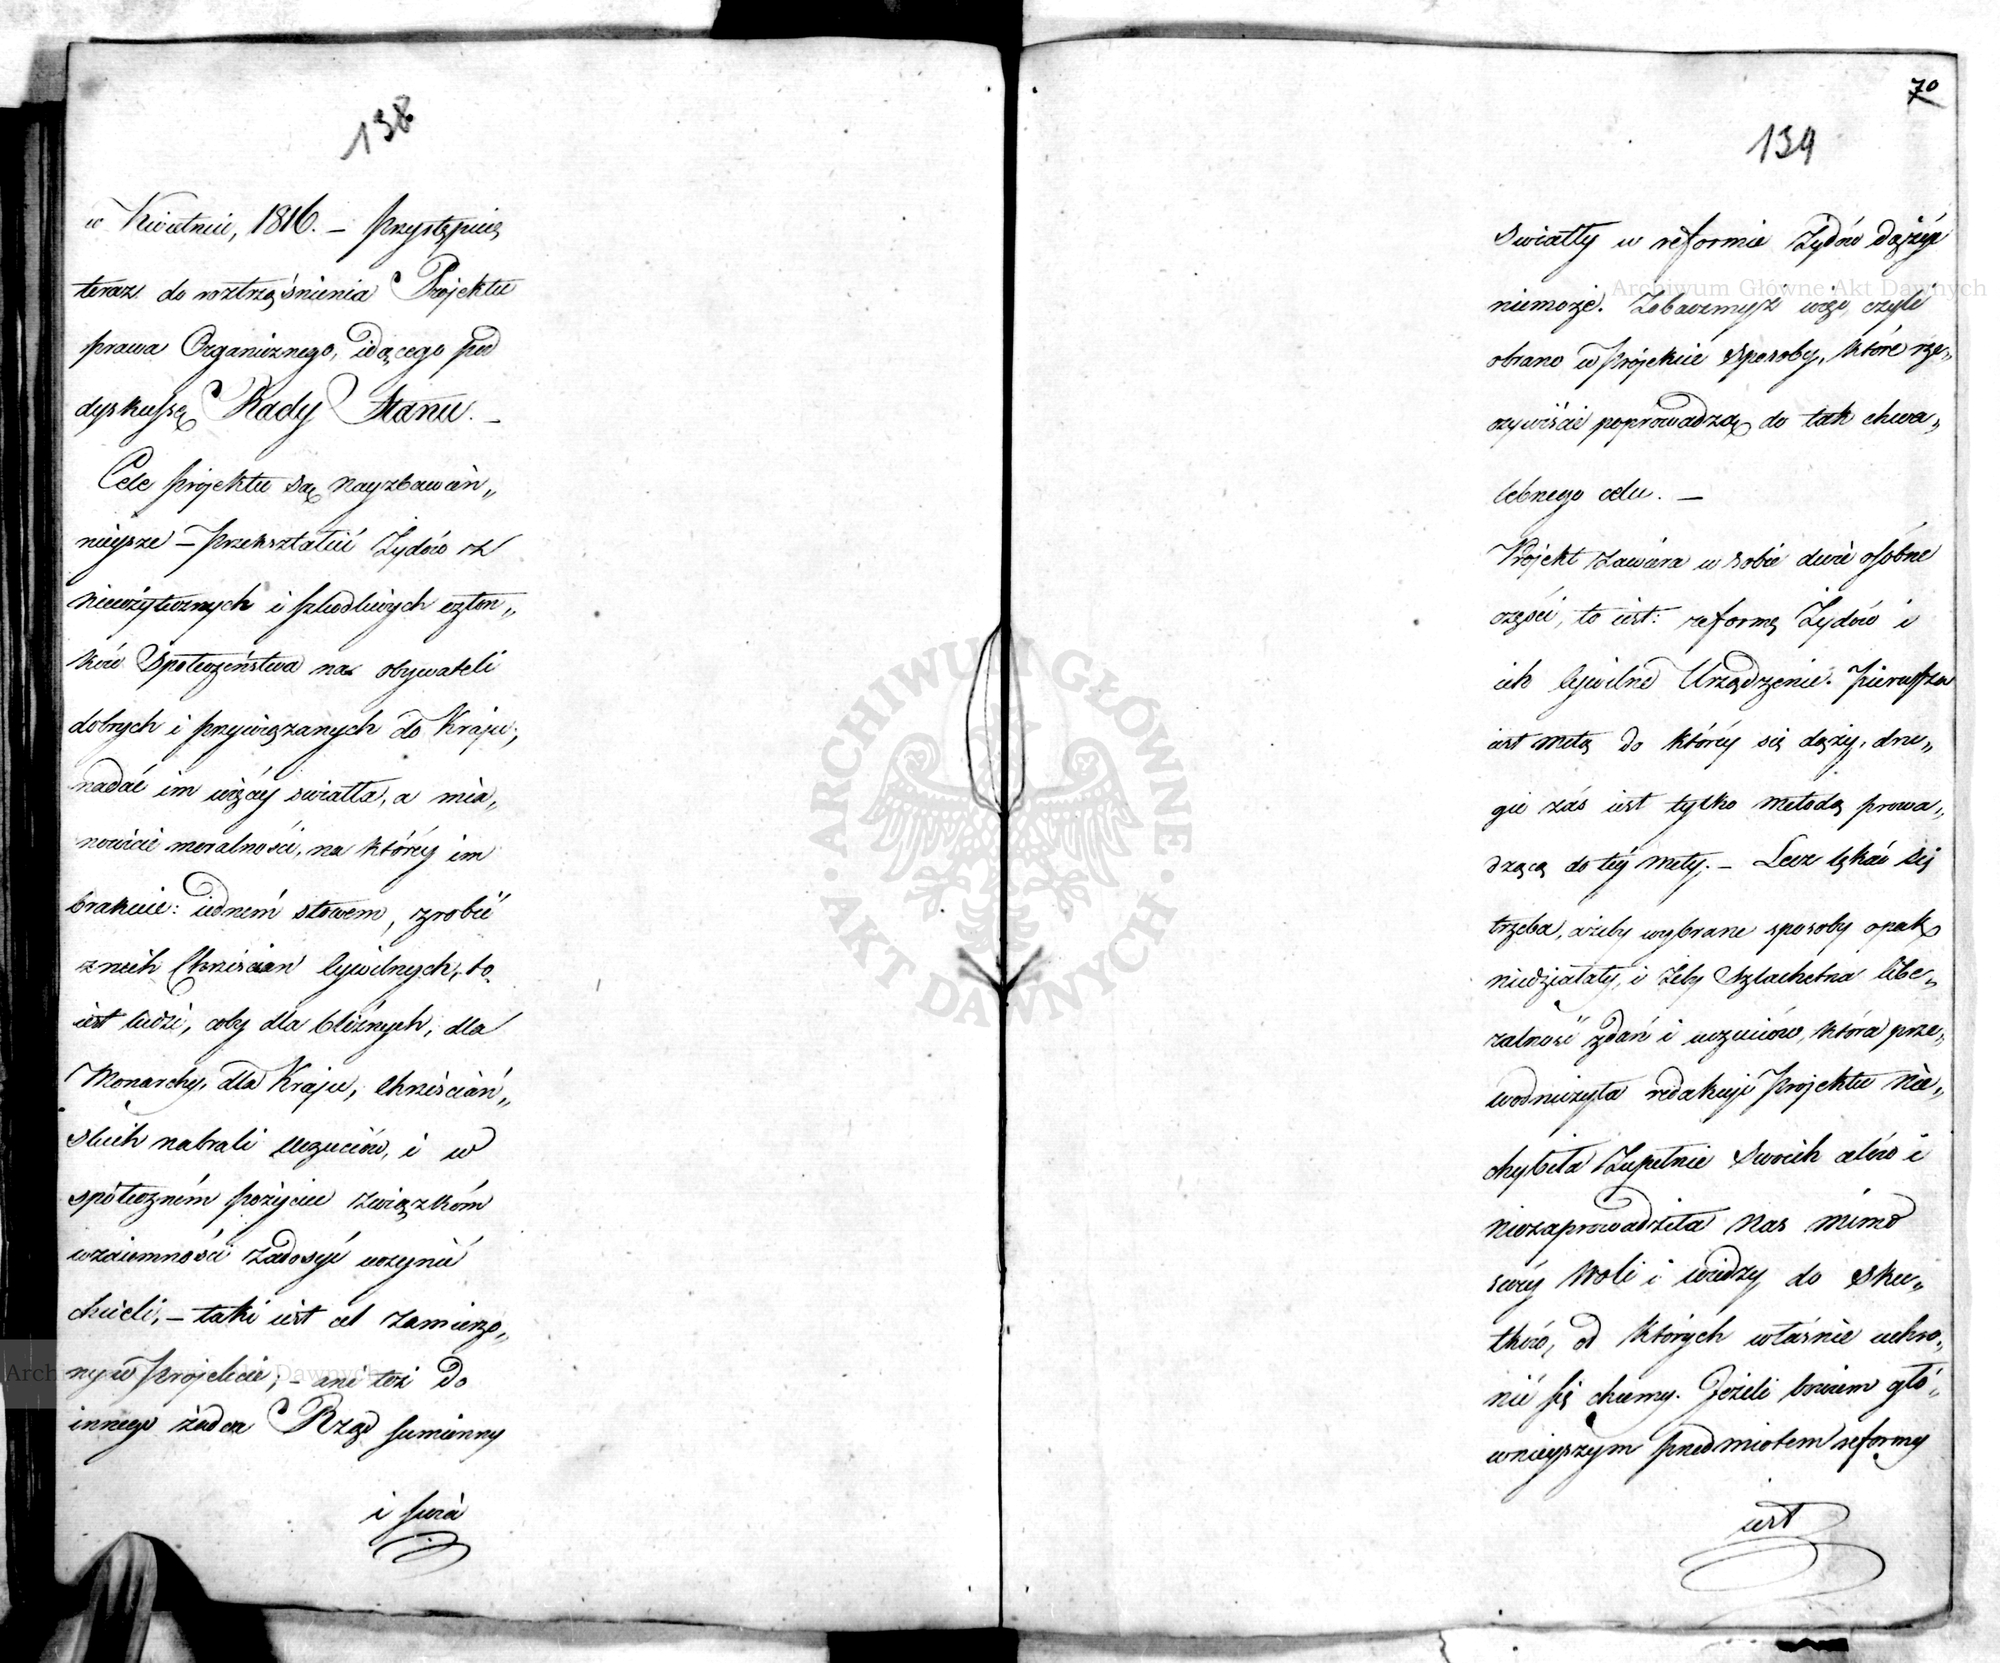 138
w Kwietniu, 1816. – Przystępuię
teraz do roztrząśnienia Projektu
prawa Organicznego, idącego pod
dyskussę Rady Stanu. –
Cele projektu są nayzbawien„
nieysze – przekształcić Żydów z
nieużytecznych i szkodliwych człon„
ków Społeczeństwa na obywateli
dobrych i przywiązanych do Kraju;
nadać im więcéy światła, a mia„
nowicie moralności, na któréy im
brakuie: iedném słowem, zrobić
z nich Chrześcian cywilnych, to
iest ludzi, coby dla bliźnych, dla
Monarchy, dla Kraju, Chrześciań„
skich nabrali uczuciów, i w
społeczném pożyciu związkóm
wzaiemności zadosyć uczynić
chcieli, – taki iest cel zamierzo„
ny w Projekcie; – ani też do
innego żaden Rząd sumienny
i świa
70
139
światły w reformie Żydów dążyć
niemoże. Zobaczmyż więc, czyli
obrano w projekcie sposoby, które rze„
czywiście poprowadzą do tak chwa„
lebnego celu. –
Projekt zawiera w sobie dwie osobne
części, to iest: reformę Żydów i
ich Cywilne Urządzenie. Pierwsza
iest metą do któréy się dąży, dru„
gie zaś iest tylko metodą prowa„
dzącą do téy mety. – Lecz lękać się
trzeba, ażeby wybrane sposoby opak
niedziałały, i żeby szlachetna libe„
ralność zdań i uczuciów, która prze„
wodniczyła redakcyi Projektu nie„
chybiła zupełnie swoich celów i
niezaprowadziła nas mimo
swéy woli i wiedzy do sku„
tków, od których właśnie uchro„
nić się chcemy. Jeżeli bowiem głó„
wnieyszym przedmiotem reformy
iest
Archiwum Główne Akt Dawnych
ARCHIWUM GŁÓWNE
· AKT DAWNYCH ·
Archiwum Główne Akt Dawnych